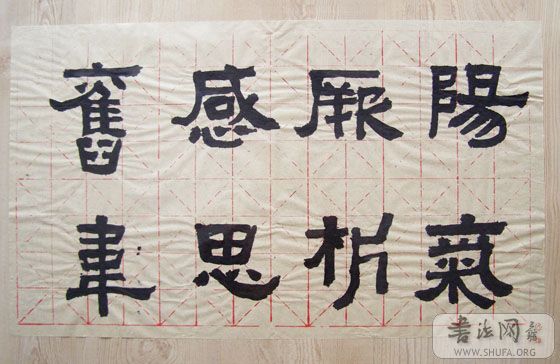 陽氣
厥析
感思
舊君
書法网
WWW.SHUFA.ORG